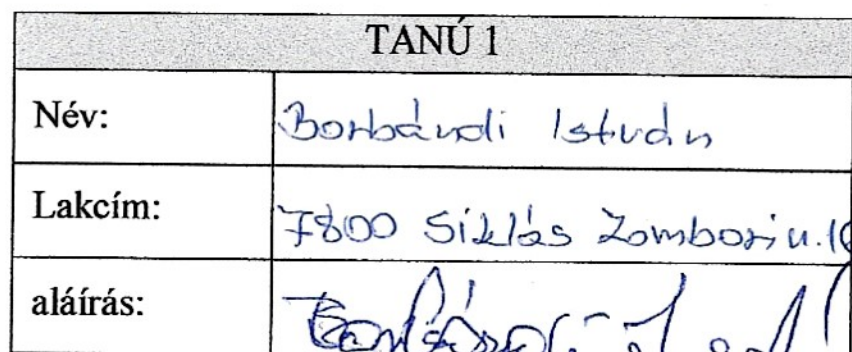 TANÚ 1
Név: Borbándi István
Lakcím: 7800 Siklós Zombori u.
aláírás: